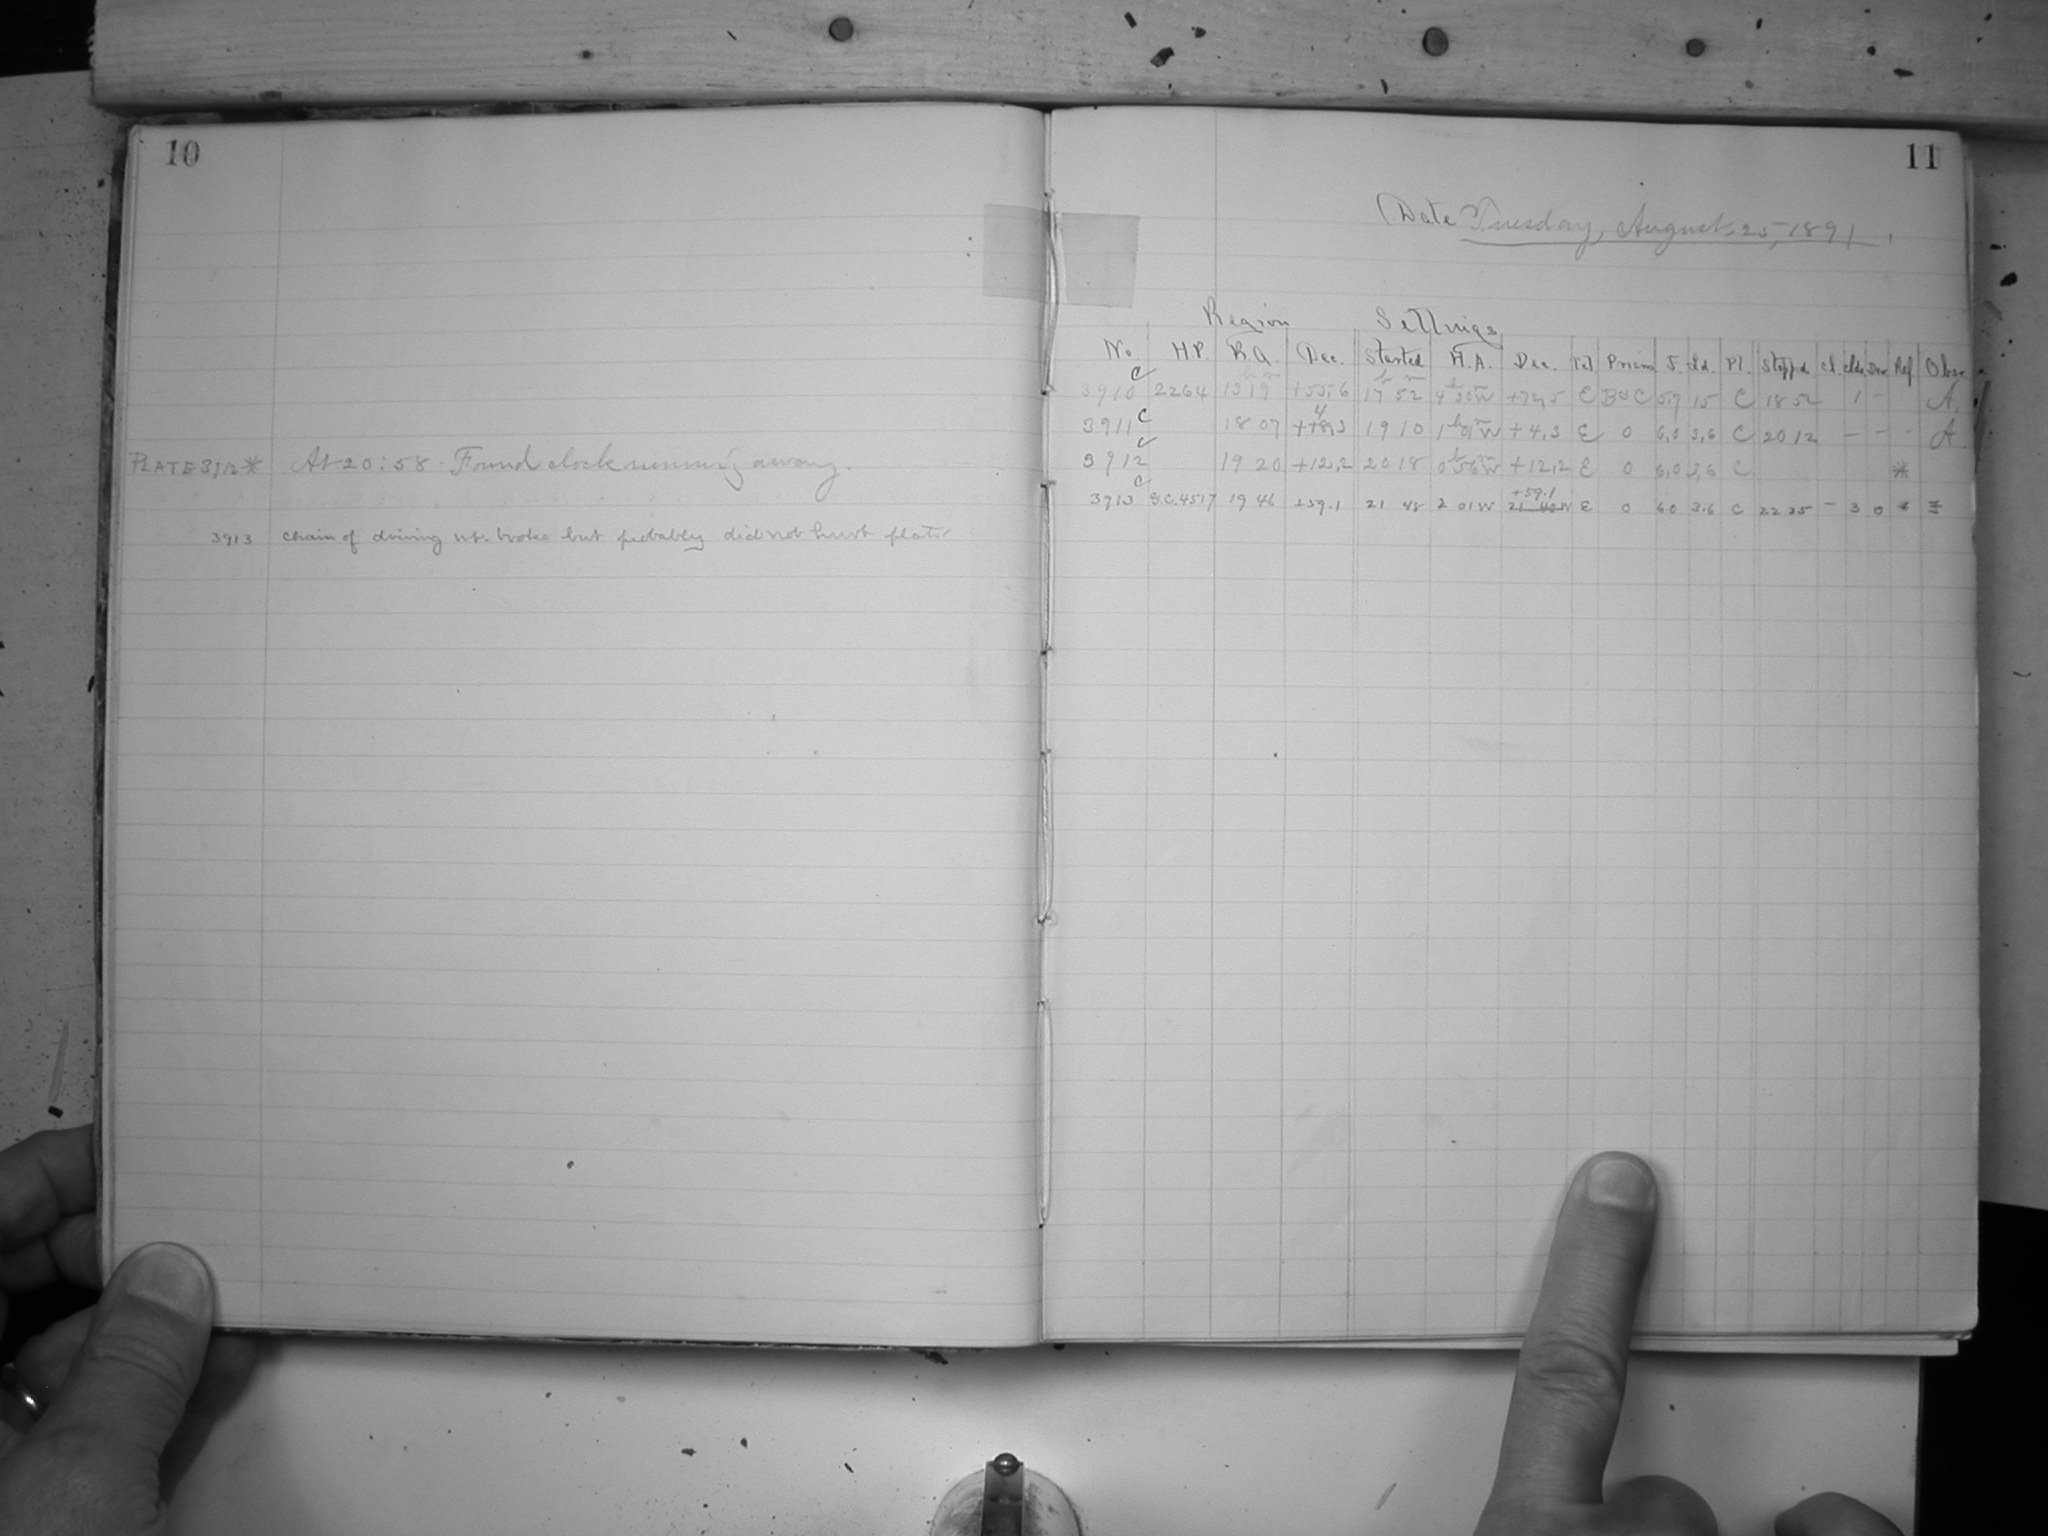 10
PLATE 3912 * At 20:58 Found clock running away.
3913 Chain of driving wt. broke but probably did not hurt plate
11
Date Tuesday, August 25, 1891.
Region Settings
No. H.P. R.A. Dec. Started H.A. Dec. Tel. Prisms S. Sd. Pl. Stopp'd. cl. clds Dew Ref. Obsr.
h m h m h m
3910 c 2264 13 19 +55.6 17 52 4 W C 15 C 18 52 1 - A.
3911 c 18 07 +4.3 19 10 1h 01m W +4.3 E 0 6.0 3.6 C 20 12 - - - A.
3912 19 20 +12.2 20 18 0h 56m W +12.2 E 0 6.0 3.6 C *
3913 c G.C.4517 19 46 +59.1 21 48 2 01 W +59.1 E 0 6.0 3.6 C 22 25 - 3 0 *